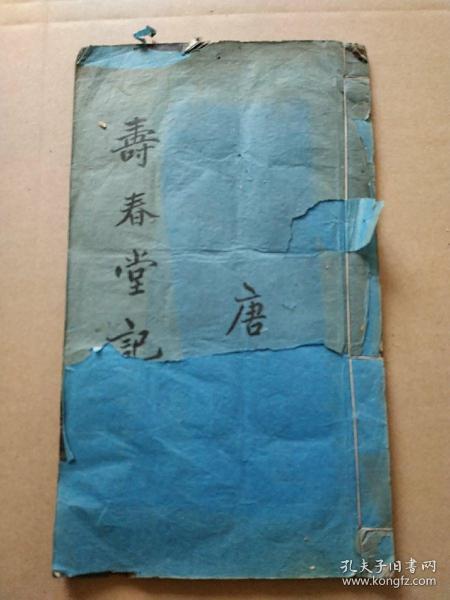 壽春堂記
唐
孔夫子旧书网
www.kongfz.com